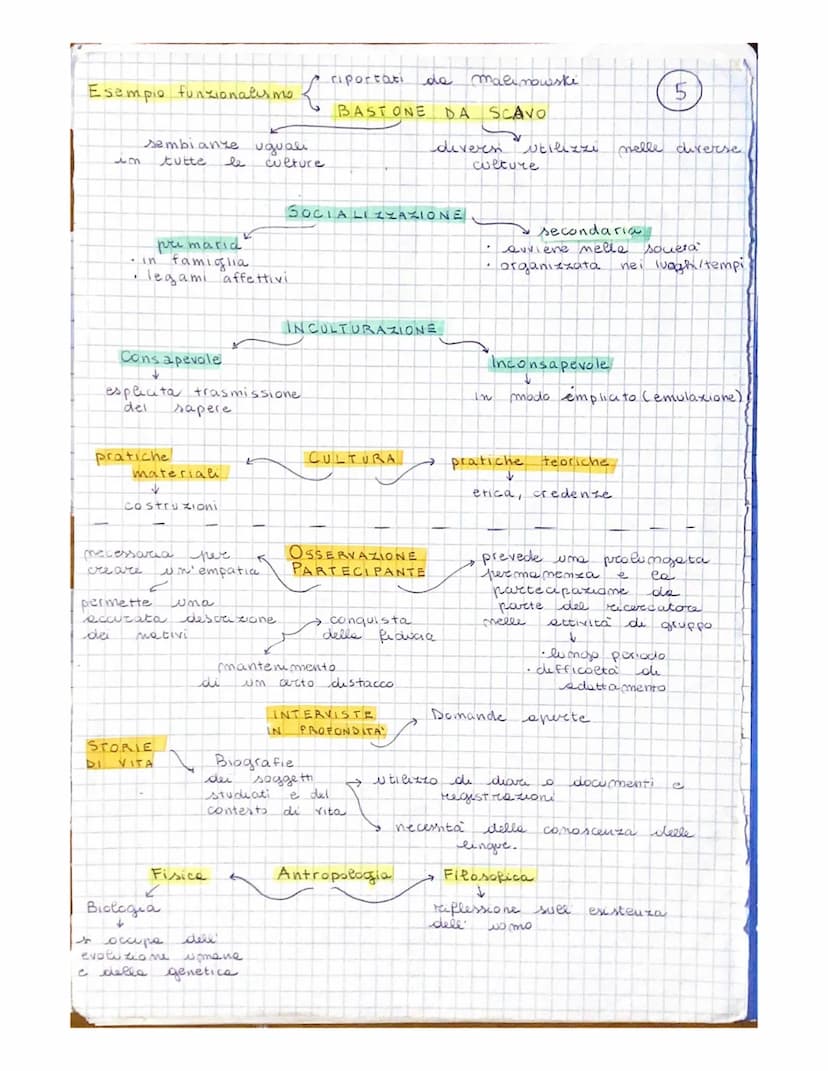 riportati da malinowski
5
Esempio funzionalismo
BASTONE DA SCAVO
sembianze uguali
in tutte le culture
diversi utilizzi nelle diverse
culture
SOCIALIZZAZIONE
primaria
· in famiglia
· legami affettivi
secondaria
· avviene nella società
· organizzata nei luoghi/tempi
INCULTURAZIONE
Consapevole
esplicita trasmissione
del sapere
Inconsapevole
in modo implicito (emulazione)
CULTURA
pratiche
materiali
costruzioni
pratiche teoriche
etica, credenze
OSSERVAZIONE
PARTECIPANTE
necessaria per
creare un'empatia
permette una
accurata descrizione
dei nativi
conquista
della fiducia
mantenimento
di un certo distacco
prevede una prolungata
permanenza e la
partecipazione da
parte del ricercatore
nelle attività di gruppo
· lungo periodo
· difficoltà di
adattamento
INTERVISTE
IN PROFONDITA'
Domande aperte
STORIE
DI VITA
Biografie
dei soggetti
studiati e del
contesto di vita
utilizzo di diari o documenti e
registrazioni
necessità della conoscenza delle
lingue.
Antropologia
Fisica
Biologia
si occupa dell'
evoluzione umana
e della genetica
Filosofica
riflessione sull' esistenza
dell' uomo